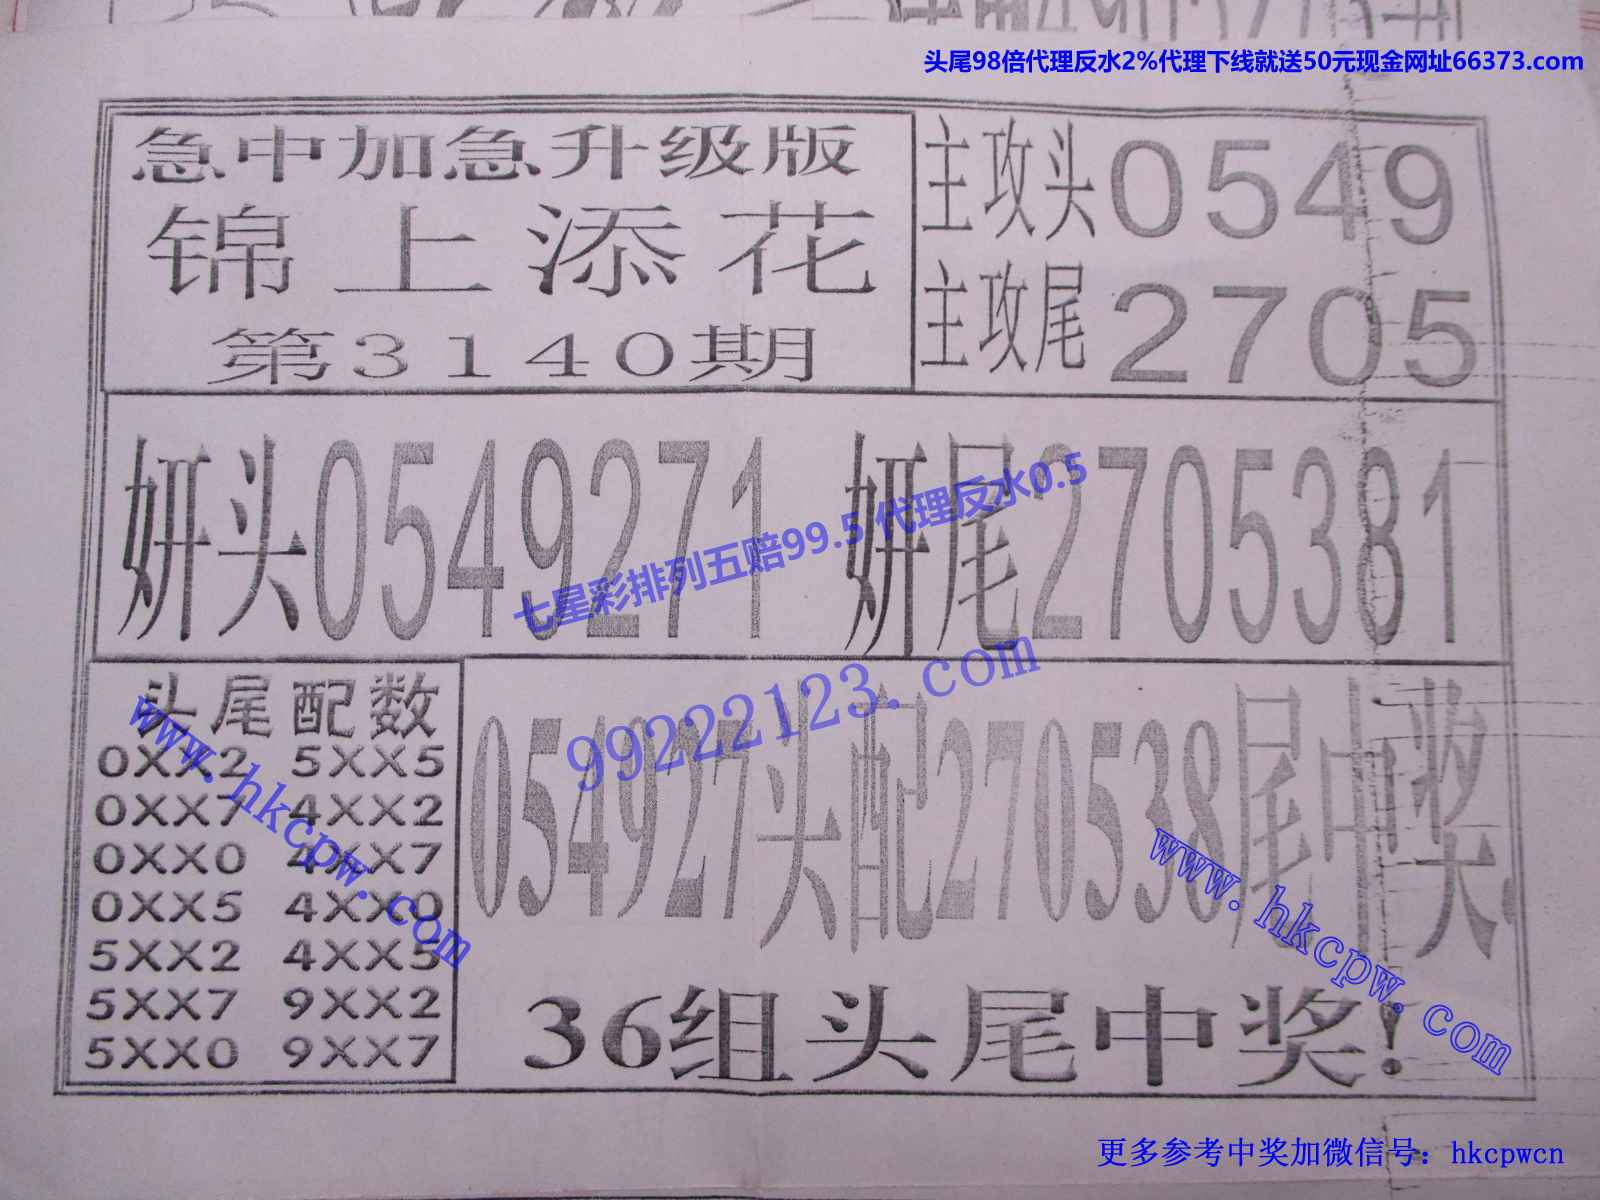 头尾98倍代理反水2%代理下线就送50元现金网址66373.com
急中加急升级版
锦上添花
第3140期
主攻头0549
主攻尾2705
妍头0549271 妍尾2705381
七星彩排列五赔99.5 代理反水0.5
99222123.com
头尾配数
0XX2 5XX5
0XX7 4XX2
0XX0 4XX7
0XX5 4XX0
5XX2 4XX5
5XX7 9XX2
5XX0 9XX7
www.hkcpw.com
054927头配270538尾中奖
36组头尾中奖!
www.hkcpw.com
更多参考中奖加微信号：hkcpwcn